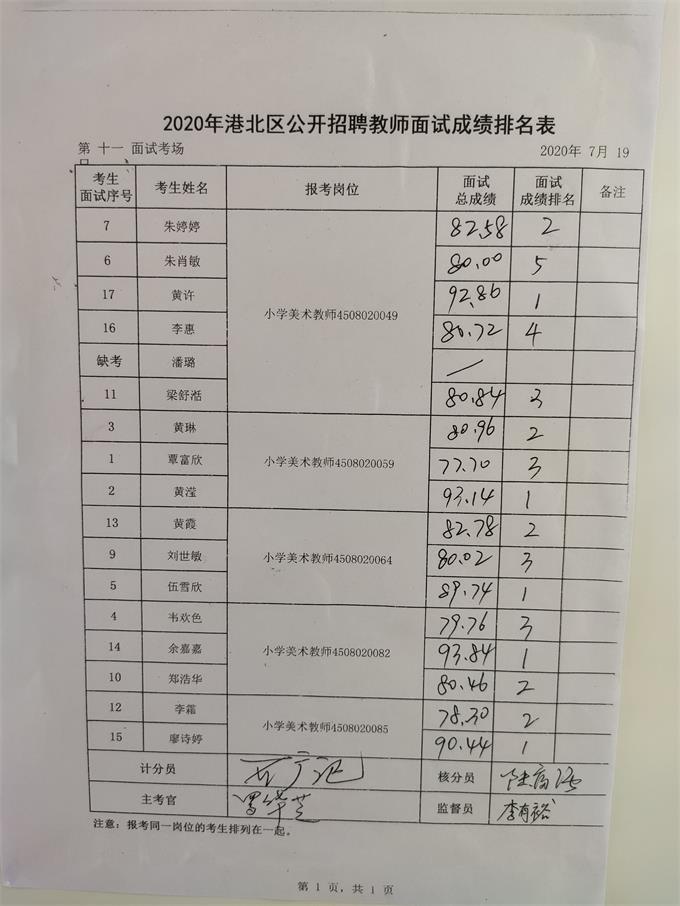 2020年港北区公开招聘教师面试成绩排名表
第 十一 面试考场 2020年 7月 19
日
考生面试序号 考生姓名 报考岗位 面试总成绩 面试成绩排名 备注
7 朱婷婷 小学美术教师4508020049 82.58 2
6 朱肖敏 80.00 5
17 黄许 92.86 1
16 李惠 80.72 4
缺考 潘璐 /
11 梁舒湉 80.84 3
3 黄琳 小学美术教师4508020059 80.96 2
1 覃富欣 77.70 3
2 黄滢 93.14 1
13 黄霞 小学美术教师4508020064 82.78 2
9 刘世敏 80.02 3
5 伍雪欣 89.74 1
4 韦欢色 小学美术教师4508020082 79.76 3
14 余嘉嘉 93.84 1
10 郑浩华 80.46 2
12 李霜 小学美术教师4508020085 78.30 2
15 廖诗婷 90.44 1
计分员 核分员
主考官 监督员 李有裕
注意：报考同一岗位的考生排列在一起。
第 1 页，共 1 页